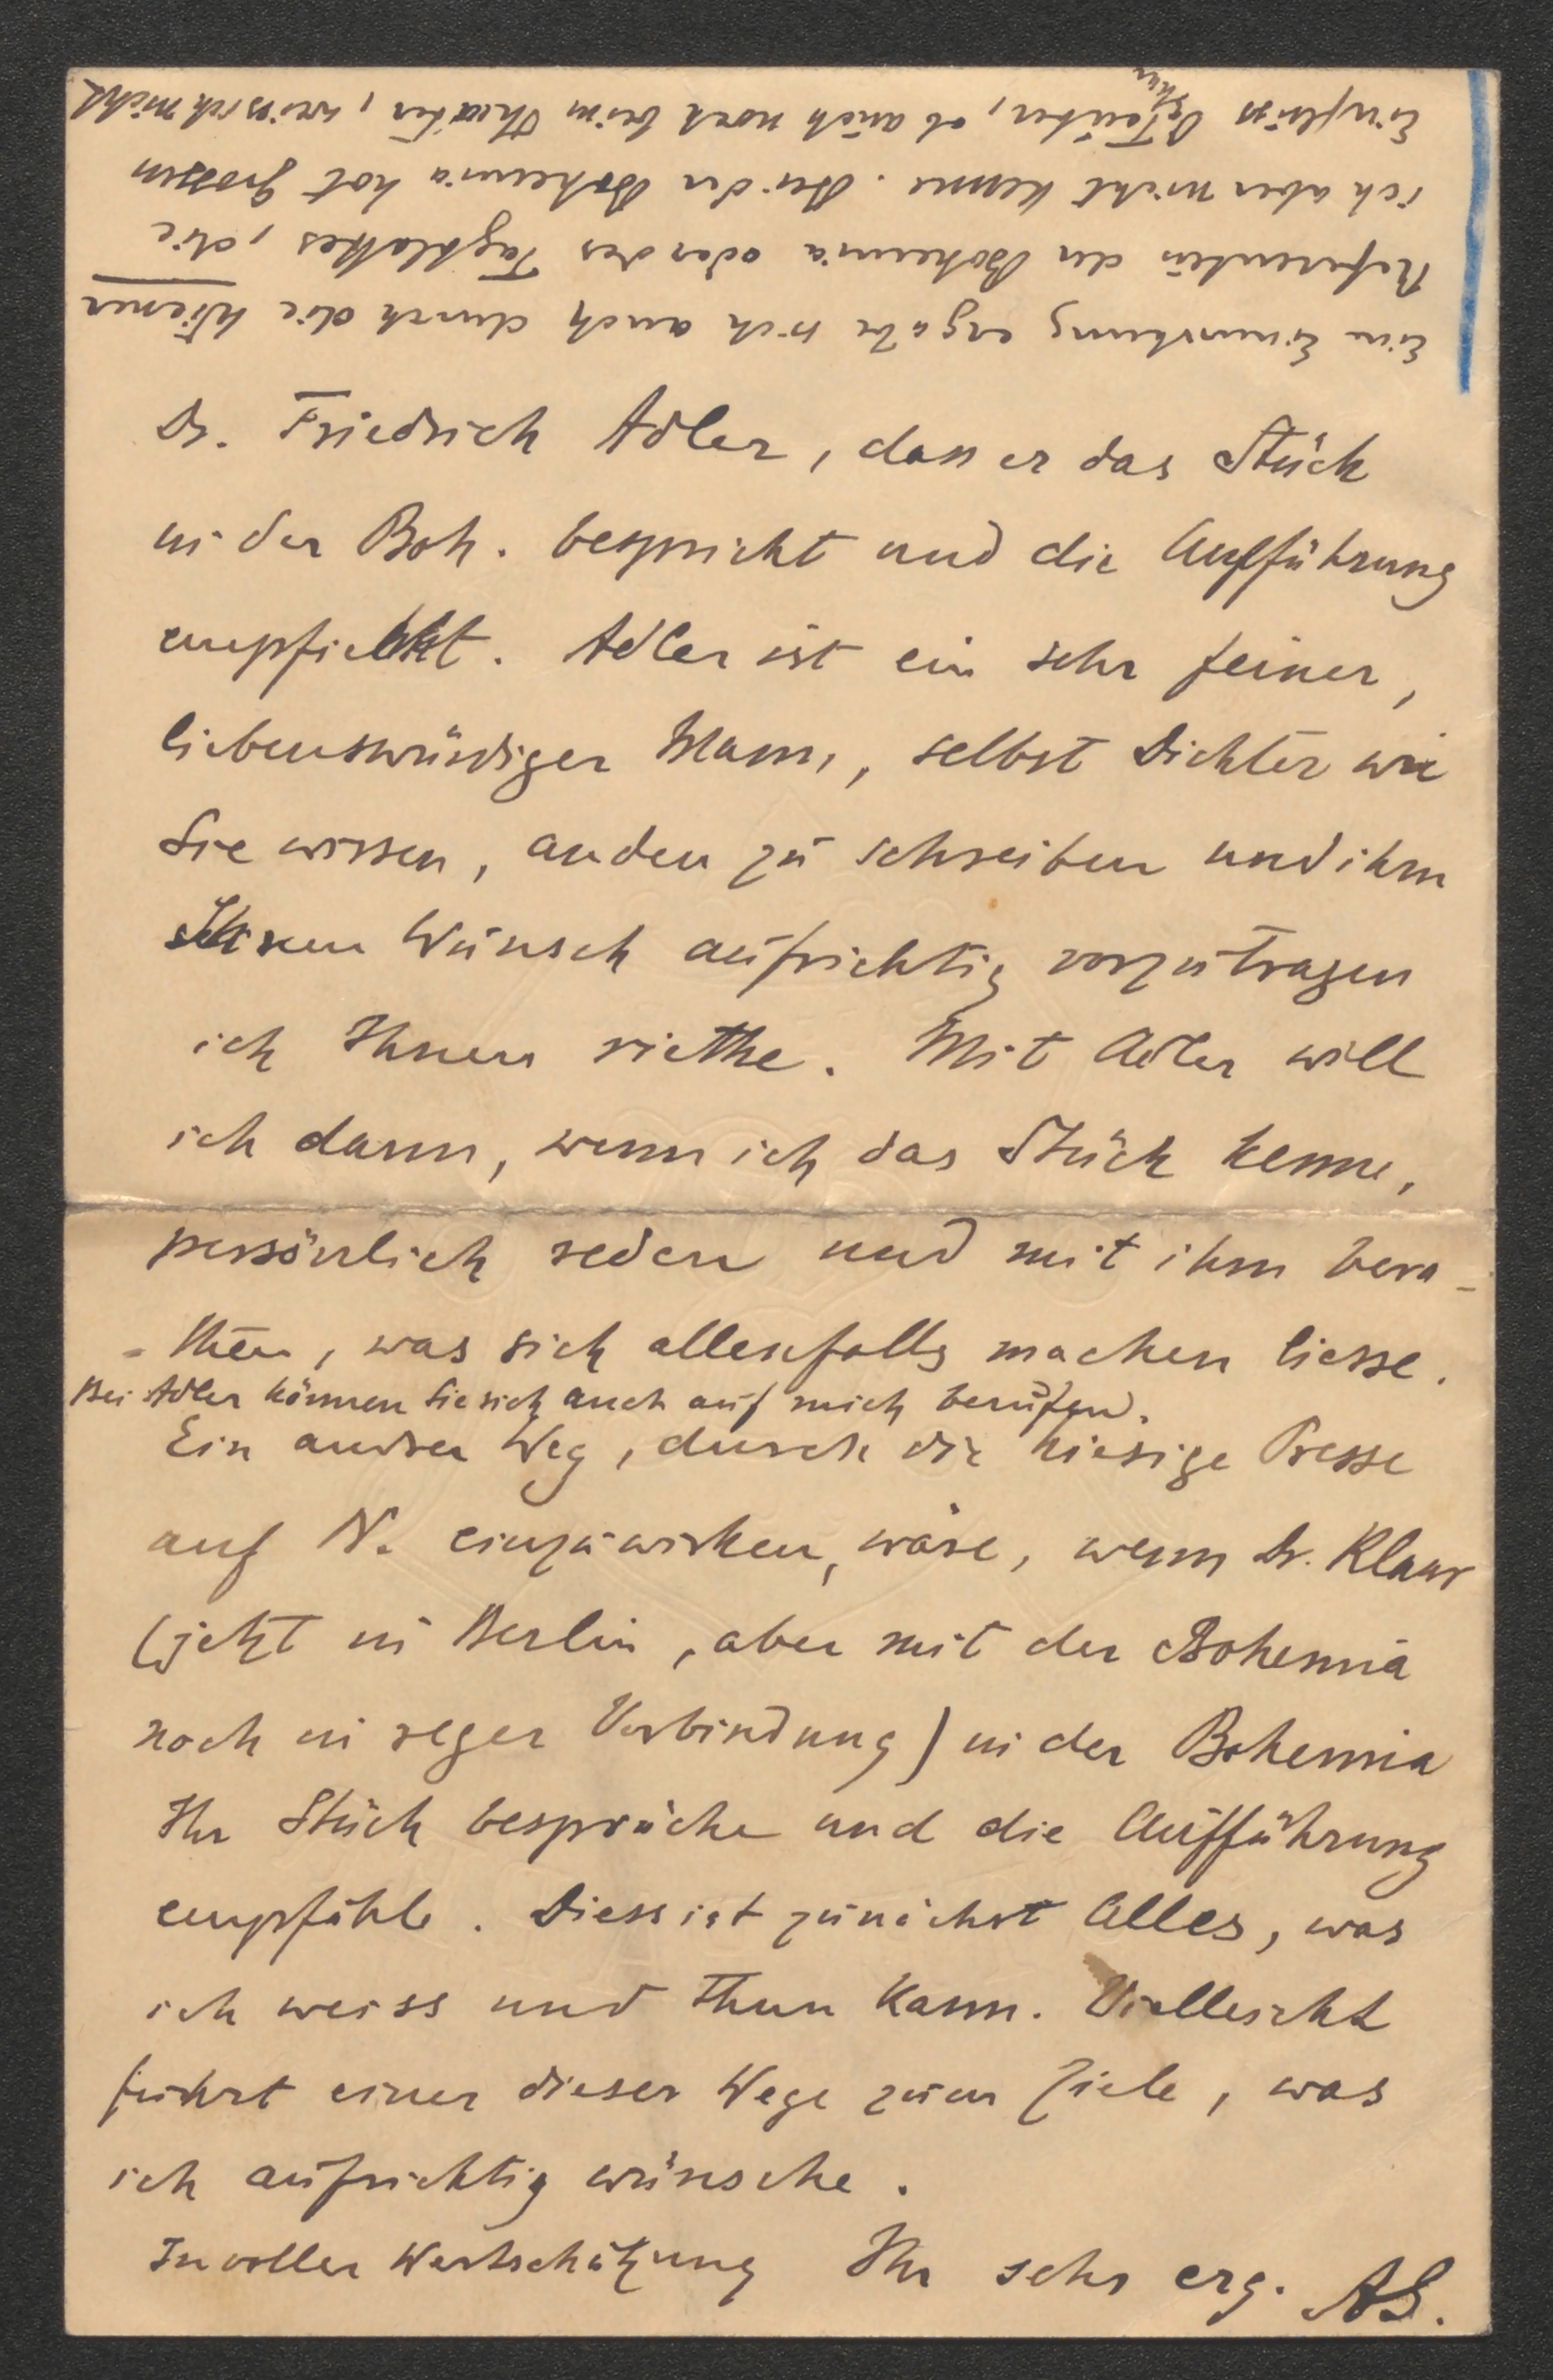 Dr. Friedrich Adler, dass er das Stück
in der Boh. bespricht und die Aufführung
empfiehlt. Adler ist ein sehr feiner,
liebenswürdiger Mann, selbst Dichter wie
Sie wissen, an den zu schreiben und ihm
Ihren Wunsch aufrichtig vorzutragen
ich Ihnen riethe. Mit Adler will
ich dann, wenn ich das Stück kenne,
persönlich reden und mit ihm bera-
-then, was sich allenfalls machen liesse.
Bei Adler können Sie sich auch auf mich berufen.
Ein andrer Weg, durch die hiesige Presse
auf N. einzuwirken, wäre, wenn Dr. Klaar
(jetzt in Berlin, aber mit der Bohemia
noch in reger Verbindung) in der Bohemia
Ihr Stück bespräche und die Aufführung
empfähle. Diess ist zunächst Alles, was
ich weiss und thun kann. Vielleicht
führt einer dieser Wege zum Ziele, was
ich aufrichtig wünsche.
In voller Wertschätzung Ihr sehr erg. AS.
Eine Einwirkung ergäbe sich auch durch die Wiener
Referenten der Bohemia oder des Tagblattes, die
ich aber nicht kenne. Bei der Bohemia hat grossen
Einfluss Teuber, ob auch noch beim Theater, weiss ich nicht